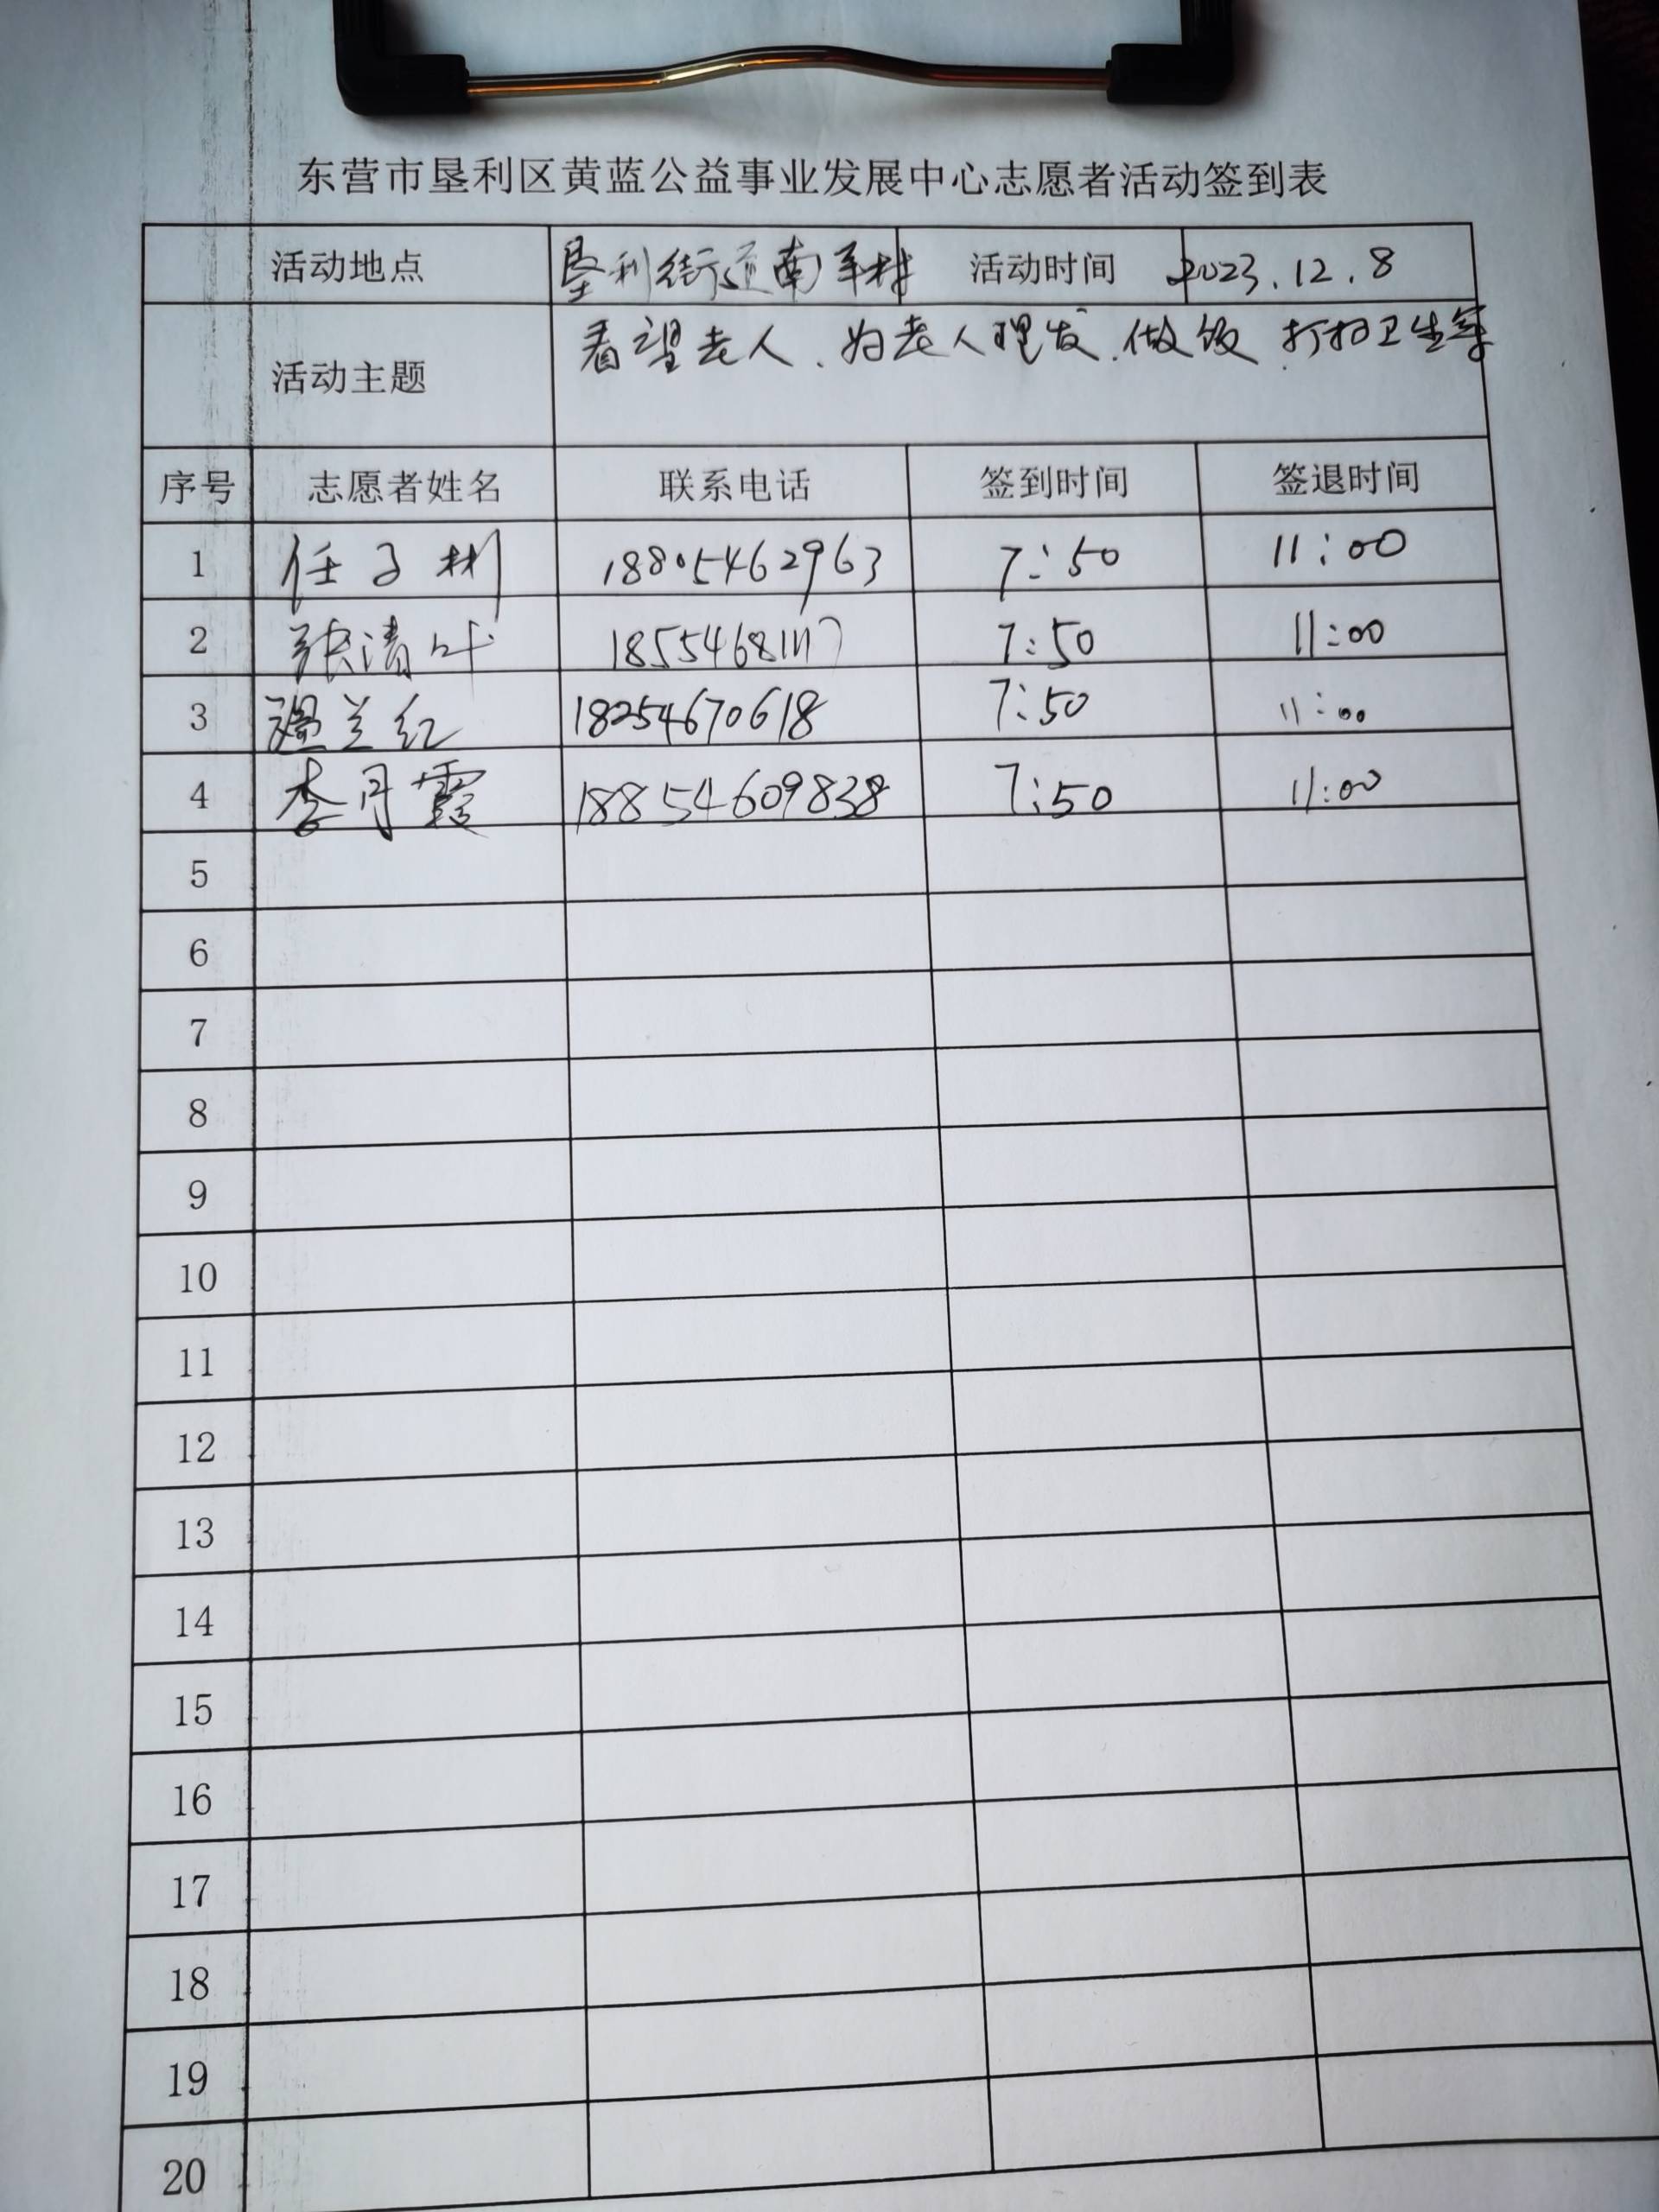 东营市垦利区黄蓝公益事业发展中心志愿者活动签到表
活动地点 垦利街道南羊村 活动时间 2023.12.8
活动主题 看望老人、为老人理发、做饭、打扫卫生等
序号 志愿者姓名 联系电话 签到时间 签退时间
1 任子彬 18805462963 7:50 11:00
2 张清叶 18554681117 7:50 11:00
3 兰红 18254670618 7:50 11:00
4 李月霞 18854609838 7:50 11:00
5
6
7
8
9
10
11
12
13
14
15
16
17
18
19
20